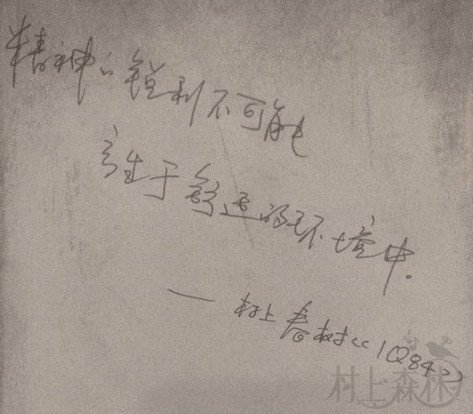 精神的锐利不可能
诞生于舒适的环境中.
——村上春树《1Q84》
村上森林